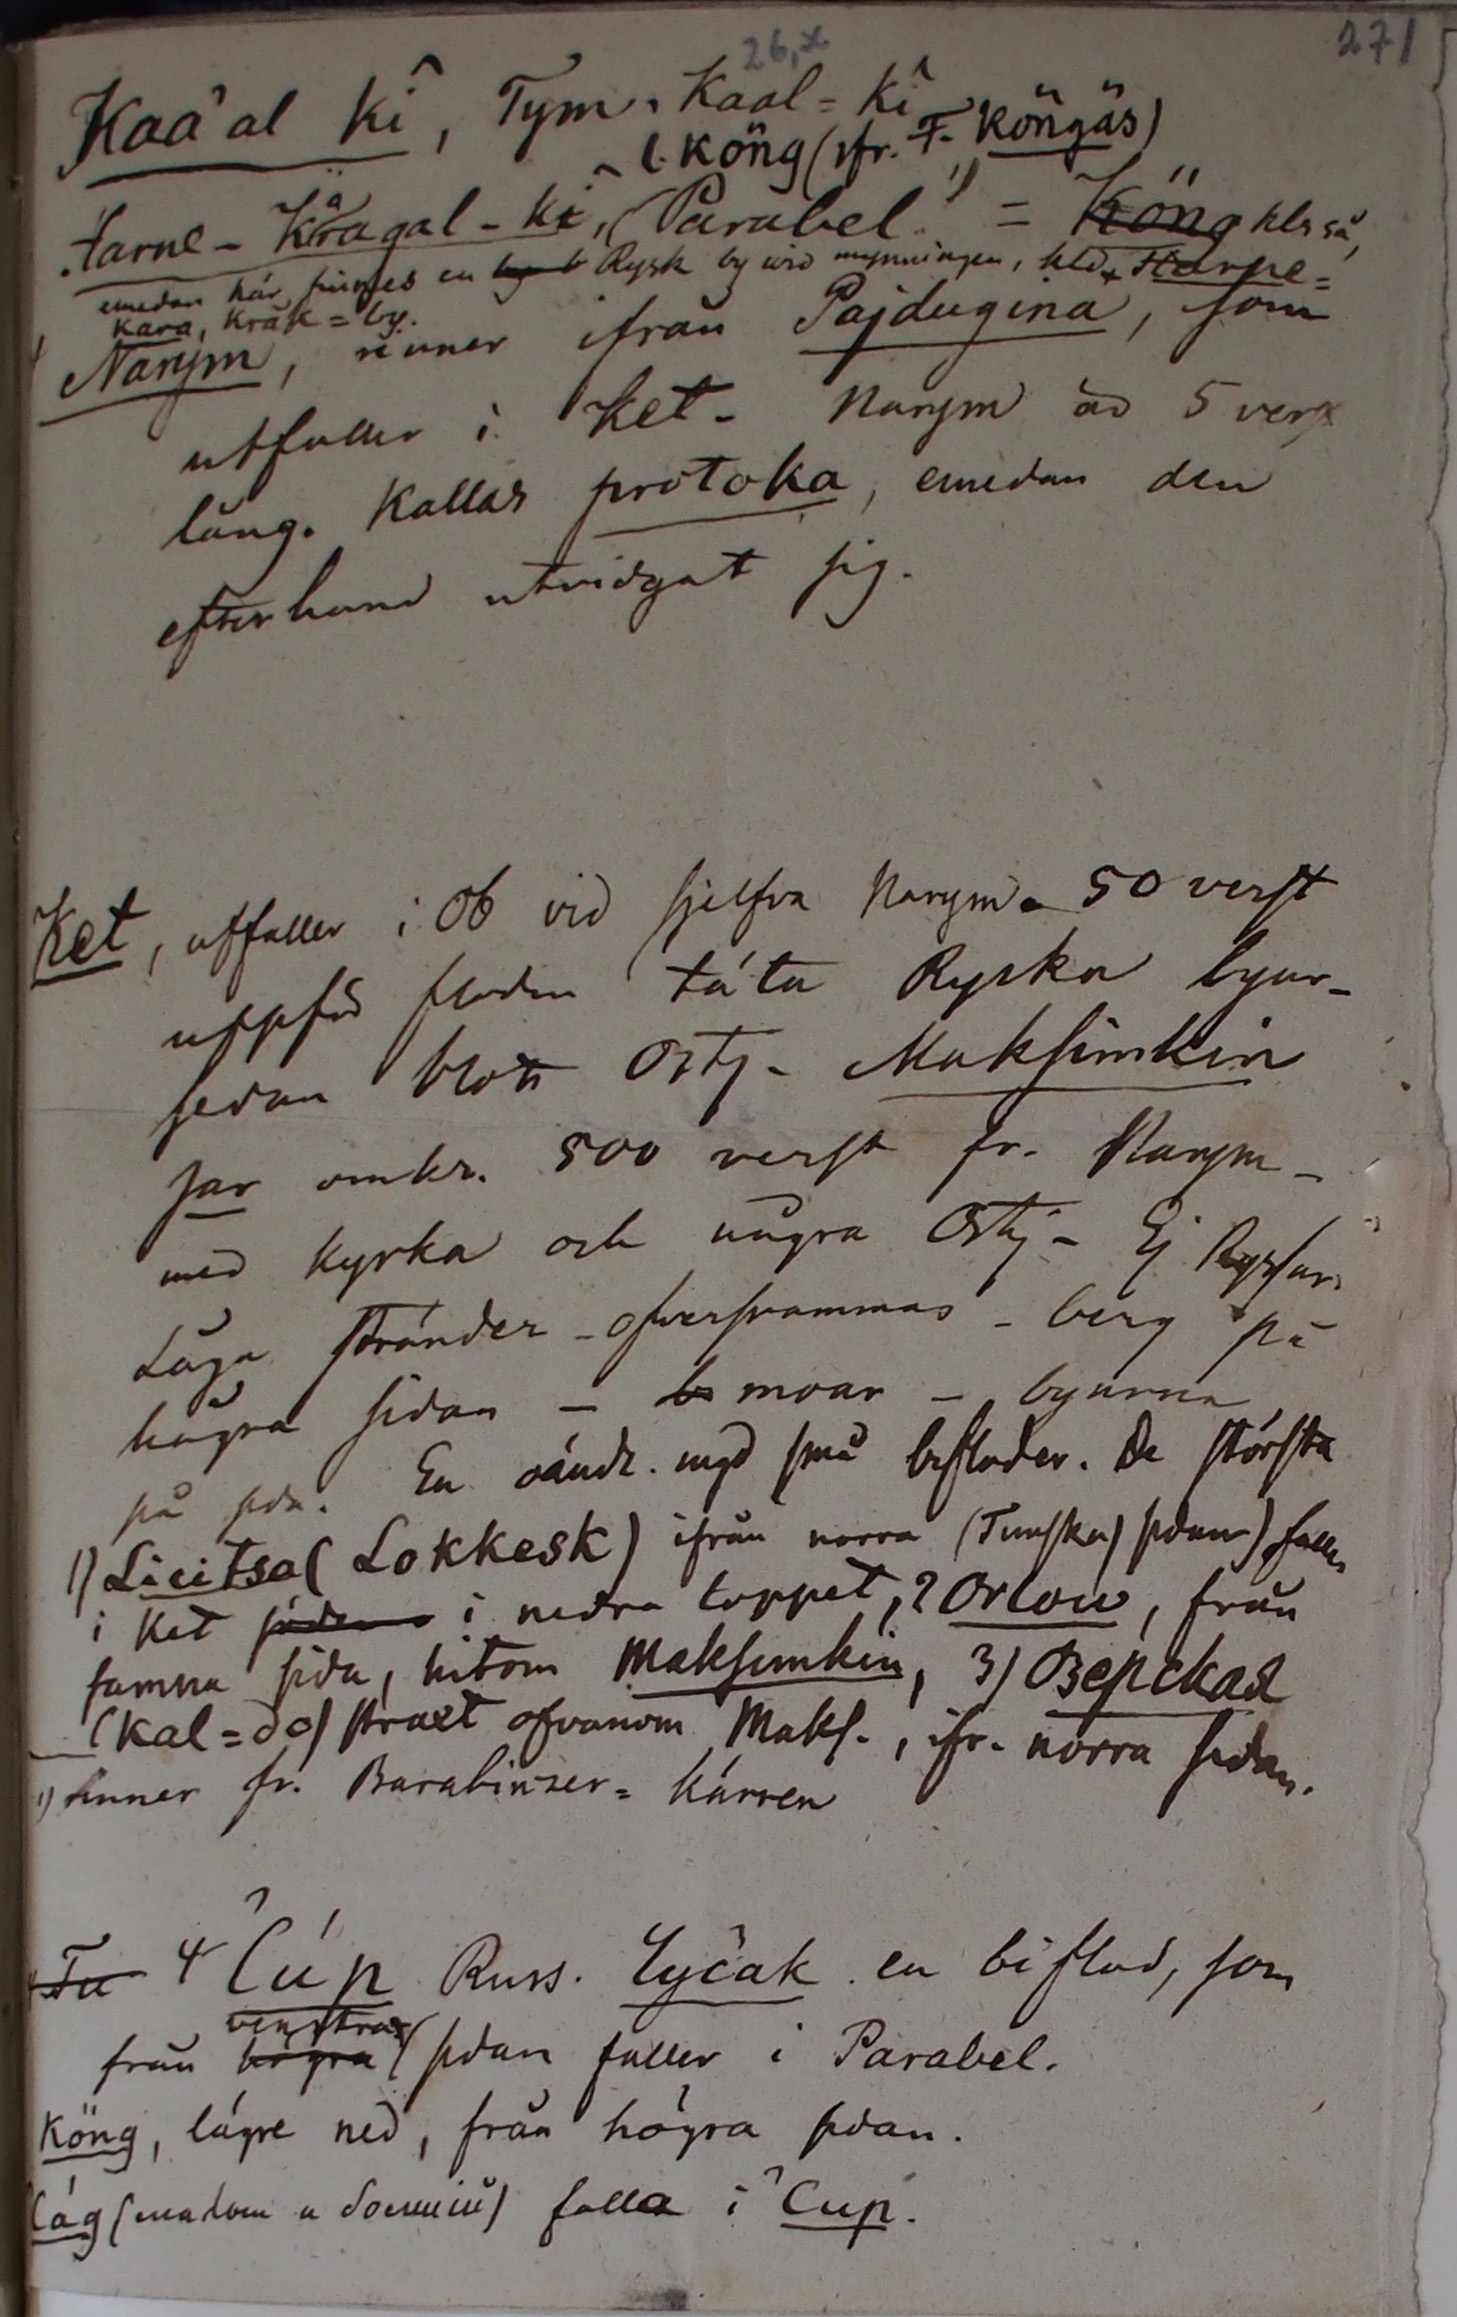 26,x
271
Kaa'al Kî, Tym, Kaal=Kî
l. Köng (jfr. F. Köngäs)
Harne-Krägal-Kî, (Parabel¹⁾ = Köng klr så,
emedan här finnes en by Rysk by wid mynningen, Harne=
Kara, Kräk=by.
Narym, rinner ifrån Pajdugina, som
utfaller i Ket- Narym är 5 verst
lång. Kallas protoka, emedan den
efterhand utvidgat sig.
Ket, utfaller i Ob vid sjelfva Narym- 50 verst
uppför floden täta Ryska byar-
sedan blott Ostj- Maksimkin
jar omkr. 500 verst fr. Narym-
med kyrka och några Ostj- Ej Ryssar.
Låga stränder - öfversvämmas - berg på
högra sidan - moar - byarna
på sda. En oändl. mgd små bifloder. De största
1) Licitsa (Lokkesk) ifrån norra sidan) faller
i Ket i nedra loppet, 2 Orlow, från
samma sida, hitom Maksimkin, 3) Озерская
(Kal=do) straxt ofvanom Maks., ifr. norra sidan.
1) rinner fr. Barabinzer=Kärren
Tu 4 Čúp Russ. Čyčak en biflod, som
från högra venstra sidan faller i Parabel.
Köng, lägre ned, från högra sidan.
Čág falla i Čup.